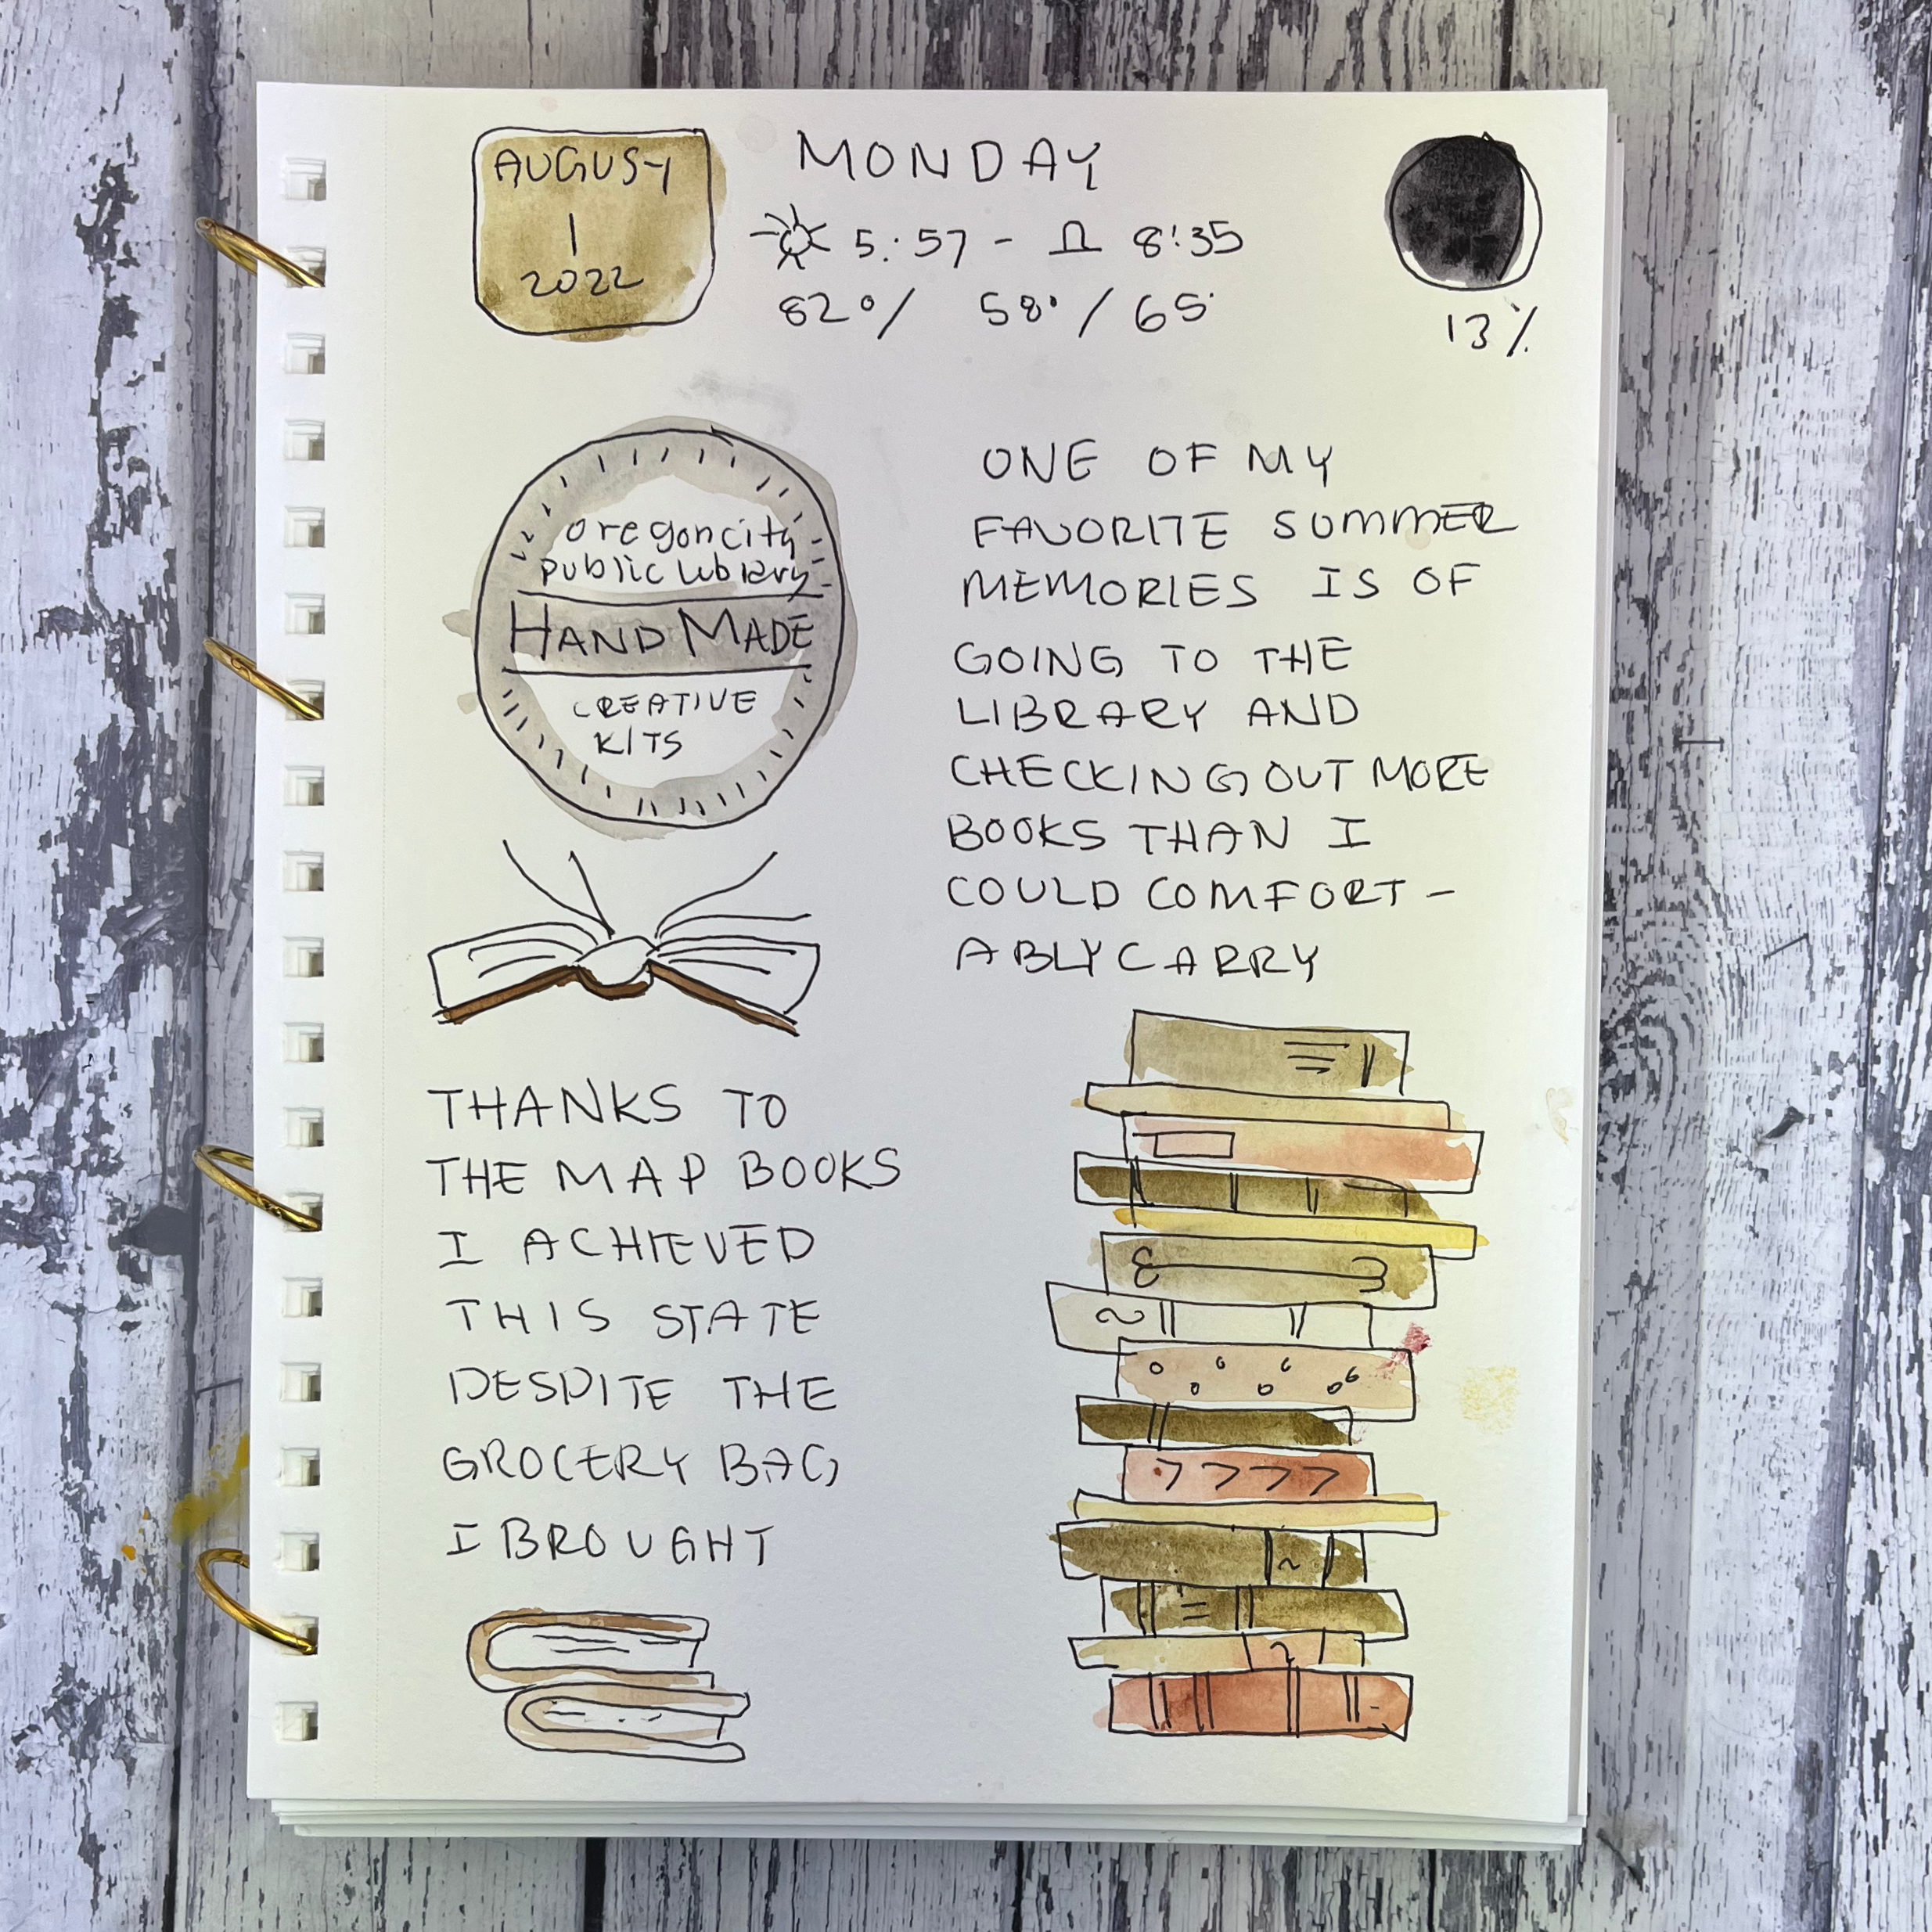 AUGUST
1
2022
MONDAY
5:57 - 8:35
82°/ 58°/65°
13%
oregon city
public library
HAND MADE
CREATIVE
KITS
ONE OF MY
FAVORITE SUMMER
MEMORIES IS OF
GOING TO THE
LIBRARY AND
CHECKING OUT MORE
BOOKS THAN I
COULD COMFORT-
ABLY CARRY
THANKS TO
THE MAP BOOKS
I ACHIEVED
THIS STATE
DESPITE THE
GROCERY BAG
I BROUGHT